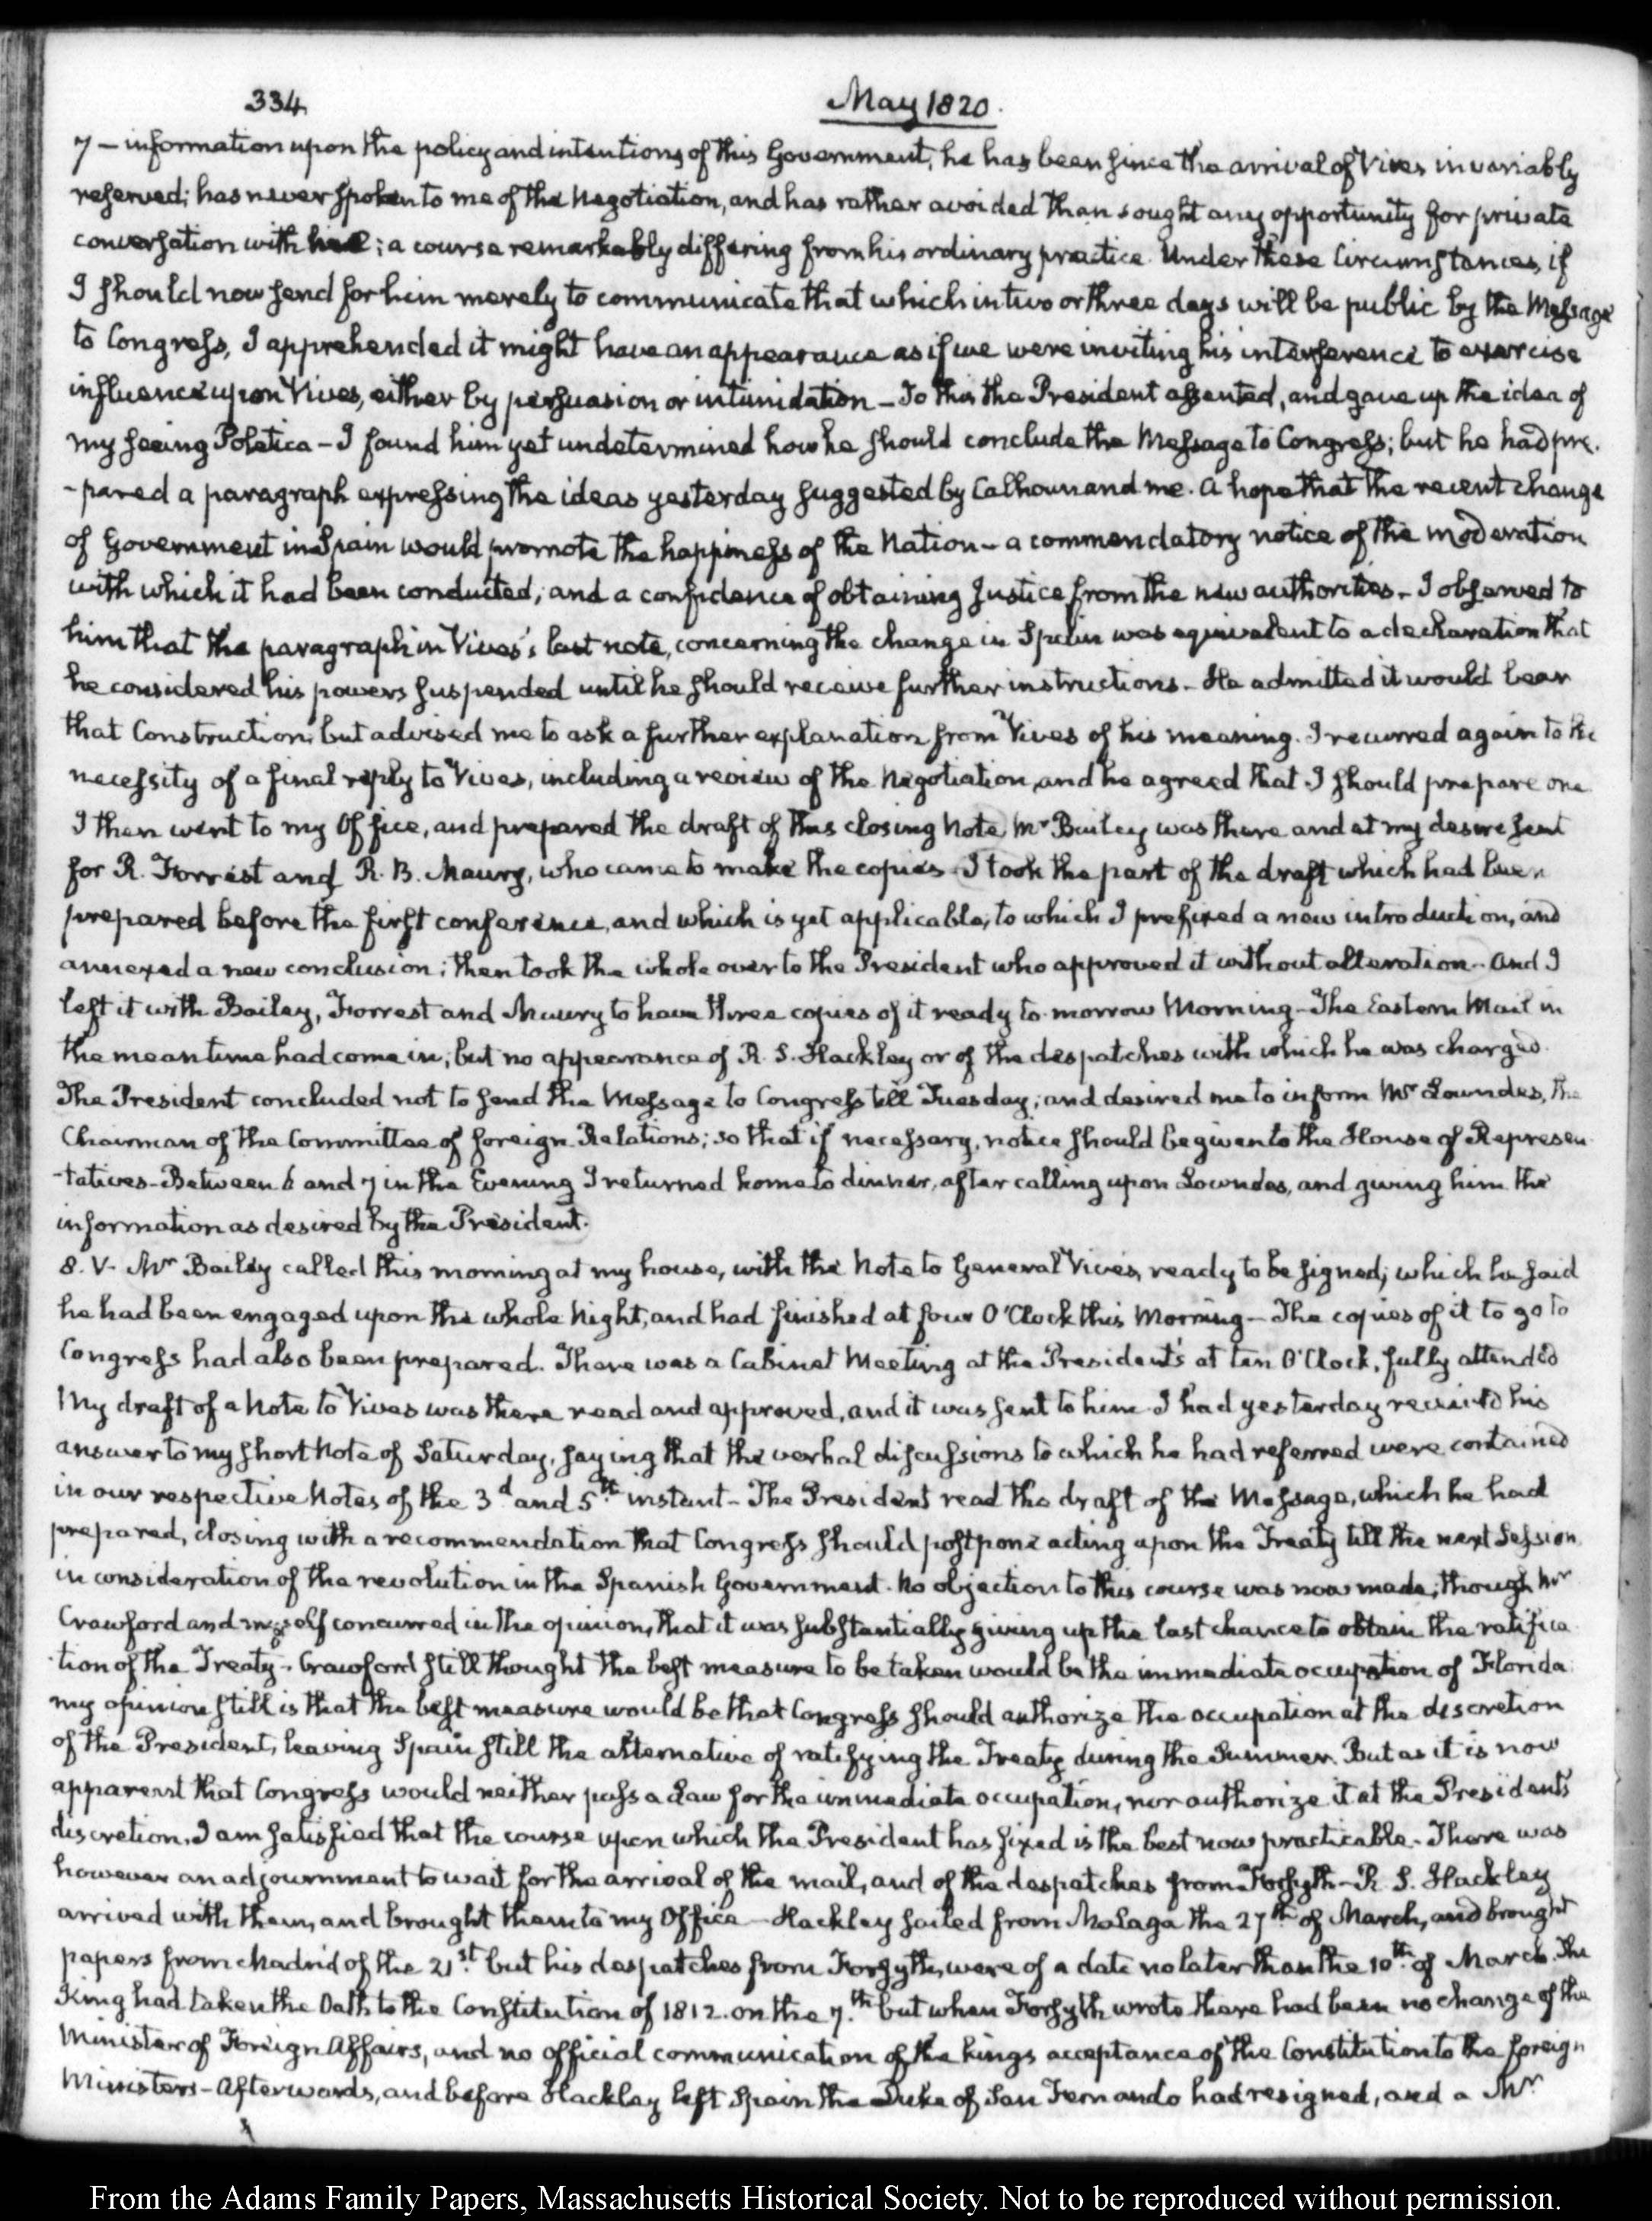 334
May 1820.
7 — information upon the policy and intentions of this Government, he has been since the arrival of Vives invariably
reserved; has never spoken to me of the Negotiation, and has rather avoided than sought any opportunity for private
conversation with ; a course remarkably differing from his ordinary practice. Under these Circumstances, if
I should now send for him merely to communicate that which in two or three days will be public by the Message
to Congress, I apprehended it might have an appearance as if we were inviting his interference to exercise
influence upon Vives, either by persuasion or intimidation — To this the President assented, and gave up the idea of
my seeing Poletica — I found him yet undetermined how he should conclude the Message to Congress; but he had pre-
-pared a paragraph expressing the ideas yesterday suggested by Calhoun and me. A hope that the recent change
of Government in Spain would promote the happiness of the Nation — a commendatory notice of the moderation
with which it had been conducted; and a confidence of obtaining Justice from the new authorities. — I observed to
him that the paragraph in Vives's last note, concerning the change in Spain was equivalent to a declaration that
he considered his powers suspended until he should receive further instructions. — He admitted it would bear
that Construction; but advised me to ask a further explanation from Vives of his meaning. I recurred again to the
necessity of a final reply to Vives, including a review of the Negotiation, and he agreed that I should prepare one
I then went to my Office, and prepared the draft of this closing Note. Mr Bailey was there and at my desire sent
for R. Forrest and R. B. Maury, who came to make the copies — I took the part of the draft which had been
prepared before the first conference, and which is yet applicable; to which I prefixed a new introduction, and
annexed a new conclusion; then took the whole over to the President who approved it without alteration — And I
left it with Bailey, Forrest and Maury to have three copies of it ready to-morrow Morning — The Eastern Mail in
the mean time had come in; but no appearance of R. S. Hackley or of the despatches with which he was charged.
The President concluded not to send the Message to Congress till Tuesday; and desired me to inform Mr Lowndes, the
Chairman of the Committee of foreign Relations; so that if necessary, notice should be given to the House of Represen-
-tatives — Between 6 and 7 in the Evening I returned home to dinner, after calling upon Lowndes, and giving him the
information as desired by the President.
8. V. Mr Bailey called this morning at my house, with the Note to General Vives, ready to be signed; which he said
he had been engaged upon the whole Night, and had finished at four O'Clock this Morning — The copies of it to go to
Congress had also been prepared. There was a Cabinet Meeting at the President's at ten O'Clock, fully attended
My draft of a Note to Vives was there read and approved, and it was sent to him. I had yesterday received his
answer to my short Note of Saturday, saying that the verbal discussions to which he had referred were contained
in our respective Notes of the 3d and 5th instant — The President read the draft of the Message, which he had
prepared, closing with a recommendation that Congress should postpone acting upon the Treaty till the next Session
in consideration of the revolution in the Spanish Government. No objection to this course was now made; though Mr
Crawford and myself concurred in the opinion, that it was substantially giving up the last chance to obtain the ratifica-
-tion of the Treaty. Crawford still thought the best measure to be taken would be the immediate occupation of Florida.
my opinion still is that the best measure would be that Congress should authorize the occupation at the discretion
of the President, leaving Spain still the alternative of ratifying the Treaty during the Summer. But as it is now
apparent that Congress would neither pass a Law for the immediate occupation, nor authorize it at the President's
discretion, I am satisfied that the course upon which the President has fixed is the best now practicable. There was
however an adjournment to wait for the arrival of the mail, and of the despatches from Forsyth — R. S. Hackley
arrived with them, and brought them to my Office — Hackley sailed from Malaga the 27th of March, and brought
papers from Madrid of the 21st but his despatches from Forsyth, were of a date no later than the 10th of March. The
King had taken the Oath to the Constitution of 1812. on the 7.th but when Forsyth wrote there had been no change of the
Minister of Foreign Affairs, and no official communication of the Kings acceptance of the Constitution to the foreign
Ministers — Afterwards, and before Hackley left Spain the Duke of San Fernando had resigned, and a Mr
From the Adams Family Papers, Massachusetts Historical Society. Not to be reproduced without permission.